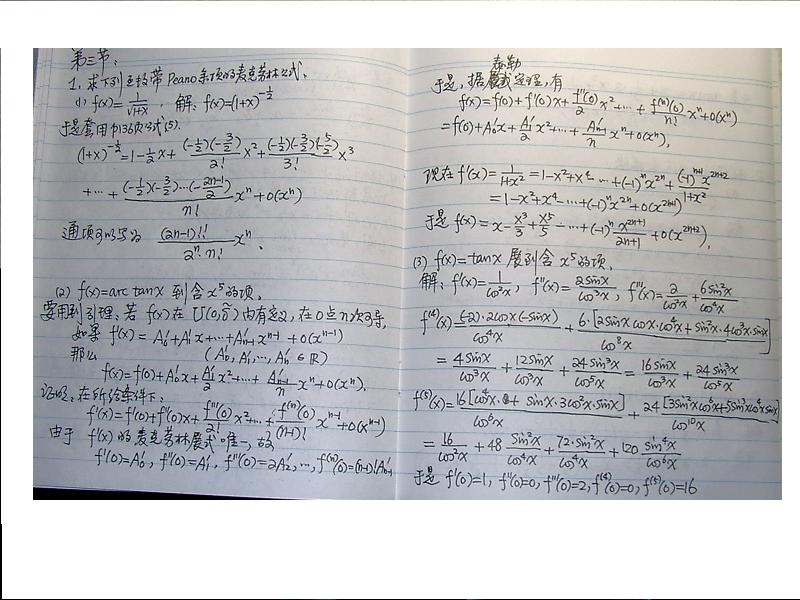 第三节、
1. 求下列函数带Peano余项的麦克劳林公式、
(1) f(x)=1/√(1+x) . 解: f(x)=(1+x)^(-1/2)
于是套用P136页式(5).
(1+x)^(-1/2)=1-1/2x+(-1/2)(-3/2)/2! x²+(-1/2)(-3/2)(-5/2)/3! x³
+···+(-1/2)(-3/2)···(-(2n-1)/2)/n! x^n+o(x^n)
通项可以写为 (2n-1)!!/(2^n·n!) x^n、
(2) f(x)=arc tanx 到含x⁵的项.
要用到引理、若 f(x)在U(0,δ)内有定义,在0点n次可导,
如果 f'(x)=A₀'+A₁'x+···+A'n-1 x^(n-1)+o(x^(n-1))
那么 (A₀',A₁',···,A'n-1∈R)
f(x)=f(0)+A₀'x+A₁'/2 x²+···+A'n-1/n x^n+o(x^n).
证明:在所给条件下:
f'(x)=f'(0)+f''(0)x+f'''(0)/2! x²···+f^(n)(0)/(n-1)! x^(n-1)+o(x^(n-1))
由于 f'(x)的麦克劳林展式唯一,故
f'(0)=A₀', f''(0)=A₁', f'''(0)=2A₂',···, f^(n)(0)=(n-1)!A'n-1
泰勒
于是,据展式定理,有
f(x)=f(0)+f'(0)x+f''(0)/2 x²···+f^(n)(0)/n! x^n+o(x^n)
=f(0)+A₀'x+A₁'/2 x²+···+A'n-1/n x^n+o(x^n),
现在f'(x)=1/(1+x²)=1-x²+x⁴-···+(-1)^n x^(2n)+(-1)^(n+1)x^(2n+2)/(1+x²)
=1-x²+x⁴-···+(-1)^n x^(2n)+o(x^(2n+1))
于是 f(x)=x-x³/3+x⁵/5-···+(-1)^n x^(2n+1)/(2n+1)+o(x^(2n+2)),
(3) f(x)=tanx 展到含x⁵的项.
解: f'(x)=1/cos²x, f''(x)=2sinx/cos³x, f'''(x)=2/cos²x+6sin²x/cos⁴x
f⁽⁴⁾(x)=(-2)·2cosx(-sinx)/cos⁴x+6·[2sinx cosx·cos⁴x+sin²x·4cos³x·sinx]/cos⁸x
=4sinx/cos³x+12sinx/cos³x+24sin³x/cos⁵x=16sinx/cos³x+24sin³x/cos⁵x
f⁽⁵⁾(x)=16[cos⁴x+sinx·3cos²x·sinx]/cos⁶x+24[3sin²x cos⁶x+5sin³x cos⁴x sinx]/cos¹⁰x
=16/cos²x+48sin²x/cos⁴x+72·sin²x/cos⁴x+120sin⁴x/cos⁶x
于是 f'(0)=1, f''(0)=0, f'''(0)=2, f⁽⁴⁾(0)=0, f⁽⁵⁾(0)=16